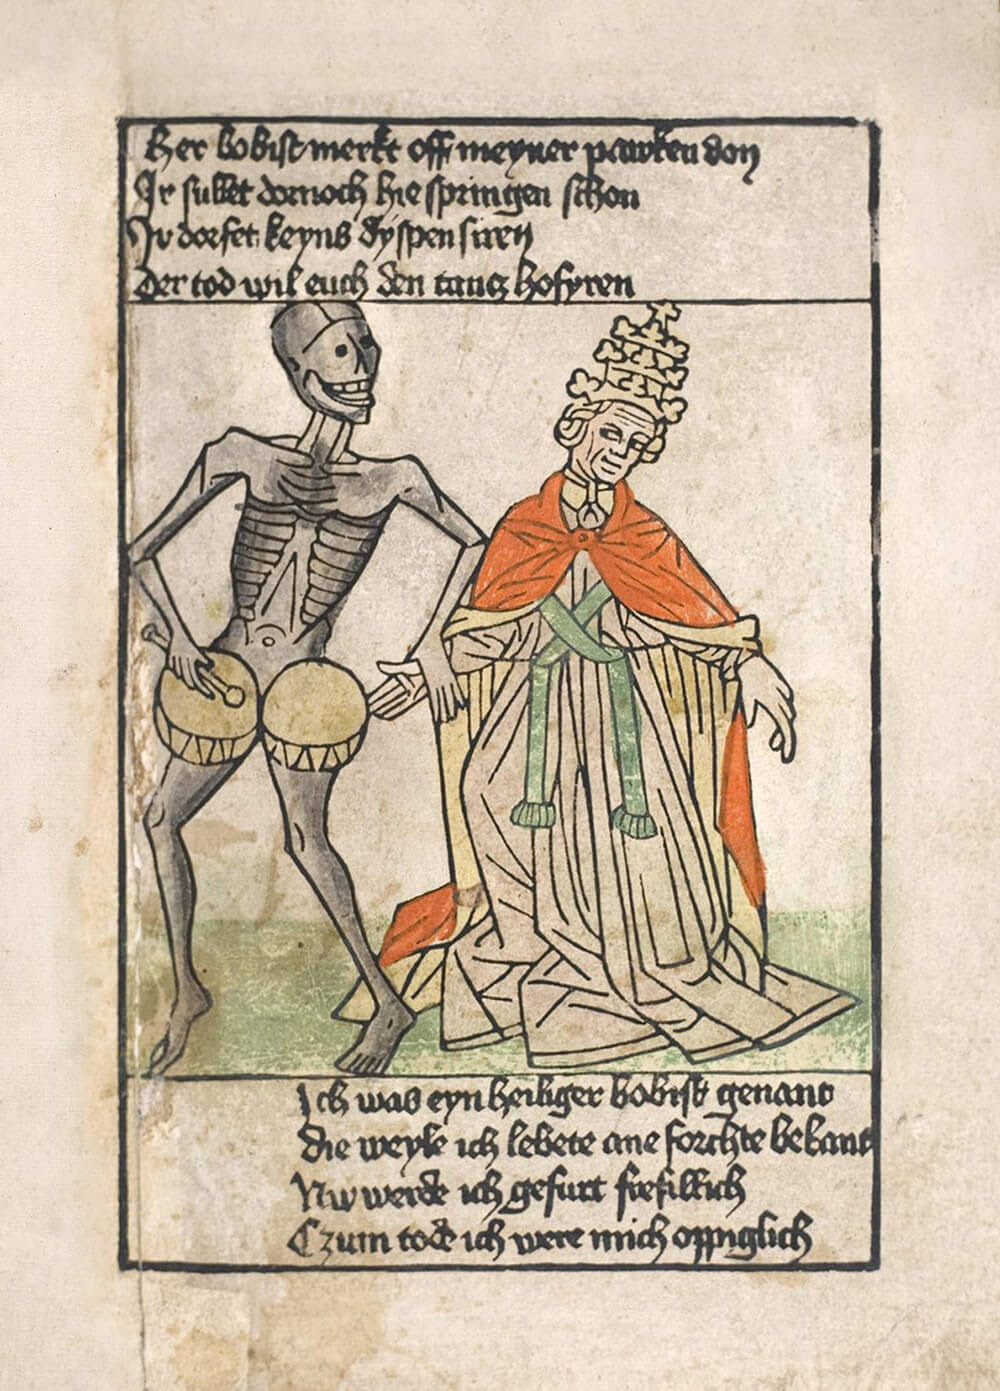 Her bobist merkt off meyner pawken don
Ir sullet dornoch hie springen schon
Ir dorfet keyns dyspensiren
Der tod wil euch den tantz hofyren
Ich was eyn heiliger bobist genant
Die weyle ich lebete ane forchte bekant
Nw werde ich gefurt frefillich
Czum tode ich were mich oppiglich